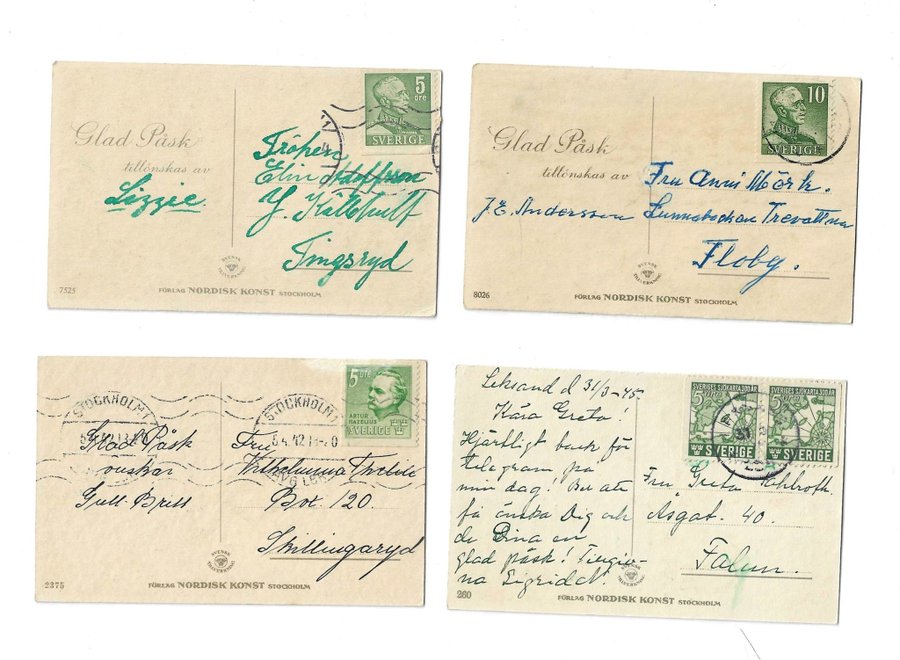 5
öre
SVERIGE
Glad Påsk
tillönskas av
Lizzie.
Fröken
Elin
Y. Källehult
Tingsryd
SVENSK
TILLVERKNING
7525
FÖRLAG NORDISK KONST STOCKHOLM
10
SVERIGE
Glad Påsk
tillönskas av
J. E. Andersson
Fru Anni Mörk.
Trevattna
Floby.
SVENSK
TILLVERKNING
8026
FÖRLAG NORDISK KONST STOCKHOLM
STOCKHOLM 1
5.4.42
Glad Påsk
önskar
Gull-Britt
STOCKHOLM 1
5.4.42
5 ÖRE
ARTUR
HAZELIUS
SVERIGE
Fru
Box 120.
Skillingaryd
SVENSK
TILLVERKNING
2375
FÖRLAG NORDISK KONST STOCKHOLM
Leksand d 31/3-45.
Kära Greta!
Hjärtligt tack för
telegram på
min dag! Ber att
få önska Dig och
de Dina en
glad påsk!
SVERIGES SJÖKARTA 300 ÅR
5 ÖRE
SVERIGE
SVERIGES SJÖKARTA 300 ÅR
5 ÖRE
SVERIGE
Fru Greta
Asgat. 40.
Falun.
SVENSK
TILLVERKNING
260
FÖRLAG NORDISK KONST STOCKHOLM